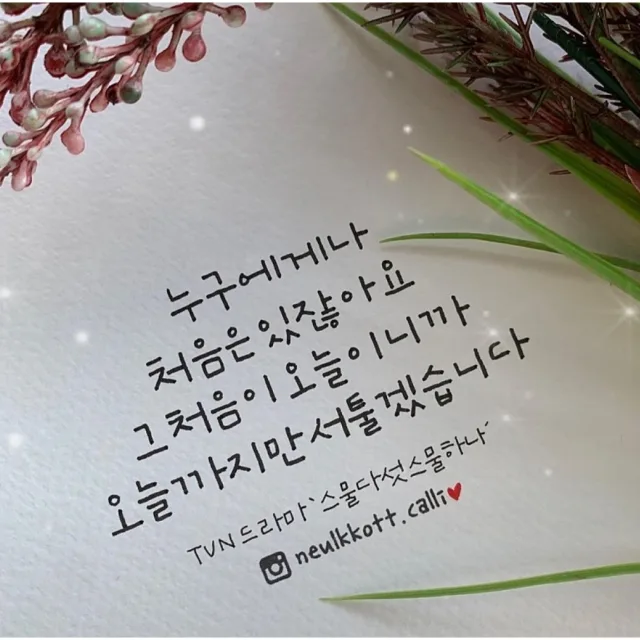 누구에게나
처음은 있잖아요
그 처음이 오늘이니까
오늘까지만 서툴겠습니다
TVN 드라마 `스물다섯 스물하나´
neulkkott.calli